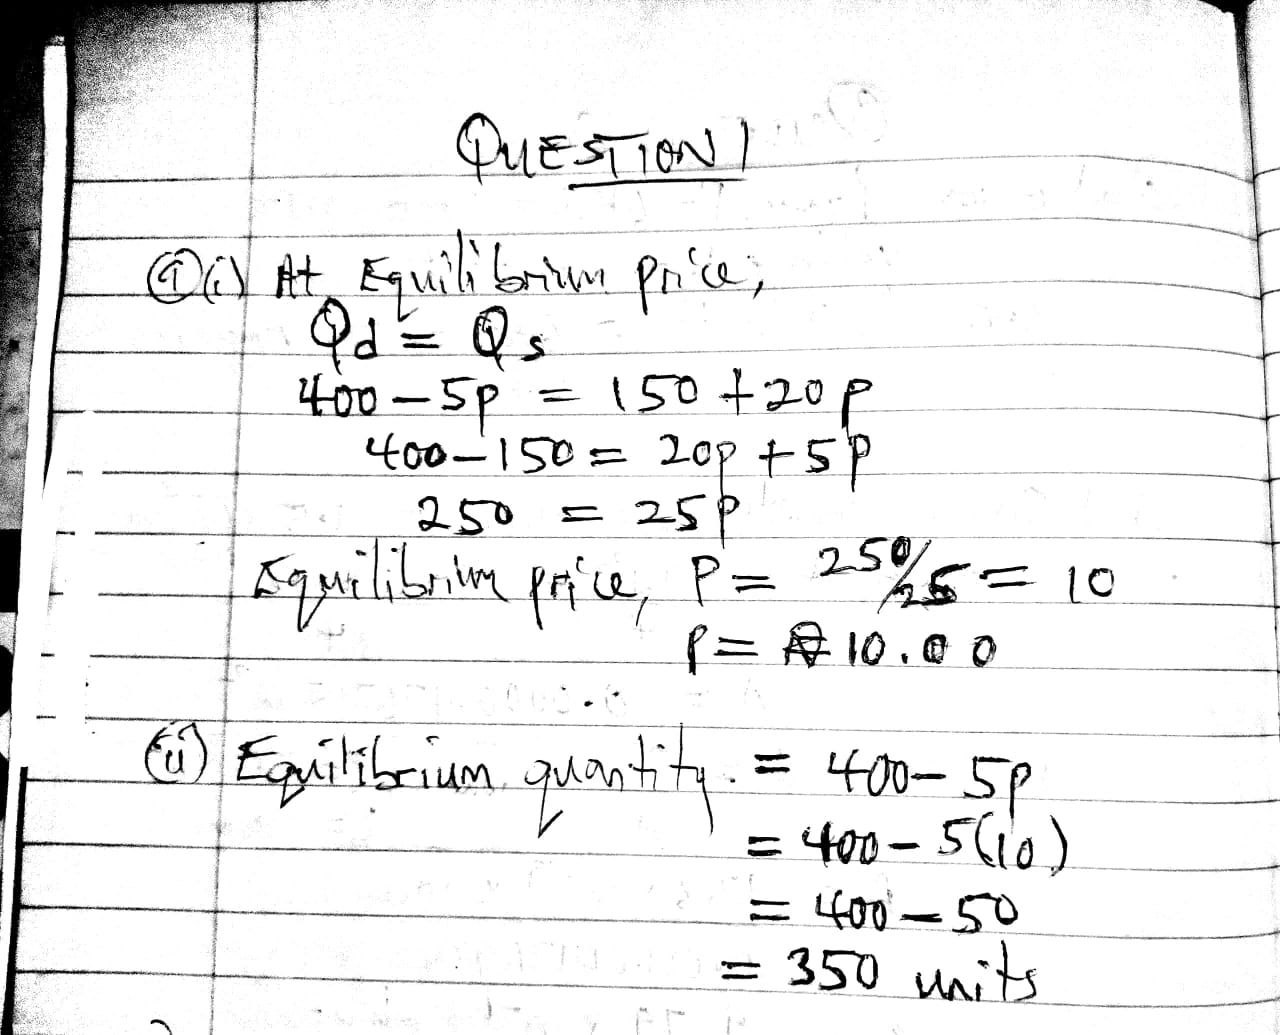 QUESTION 1
(a)(i) At Equilibrium price,
Qd = Qs
400 – 5p = 150 + 20p
400 – 150 = 20p + 5p
250 = 25p
Equilibrium price, P = 250/25 = 10
P = ₦10.00
(ii) Equilibrium quantity. = 400 – 5p
= 400 – 5(10)
= 400 – 50
= 350 units